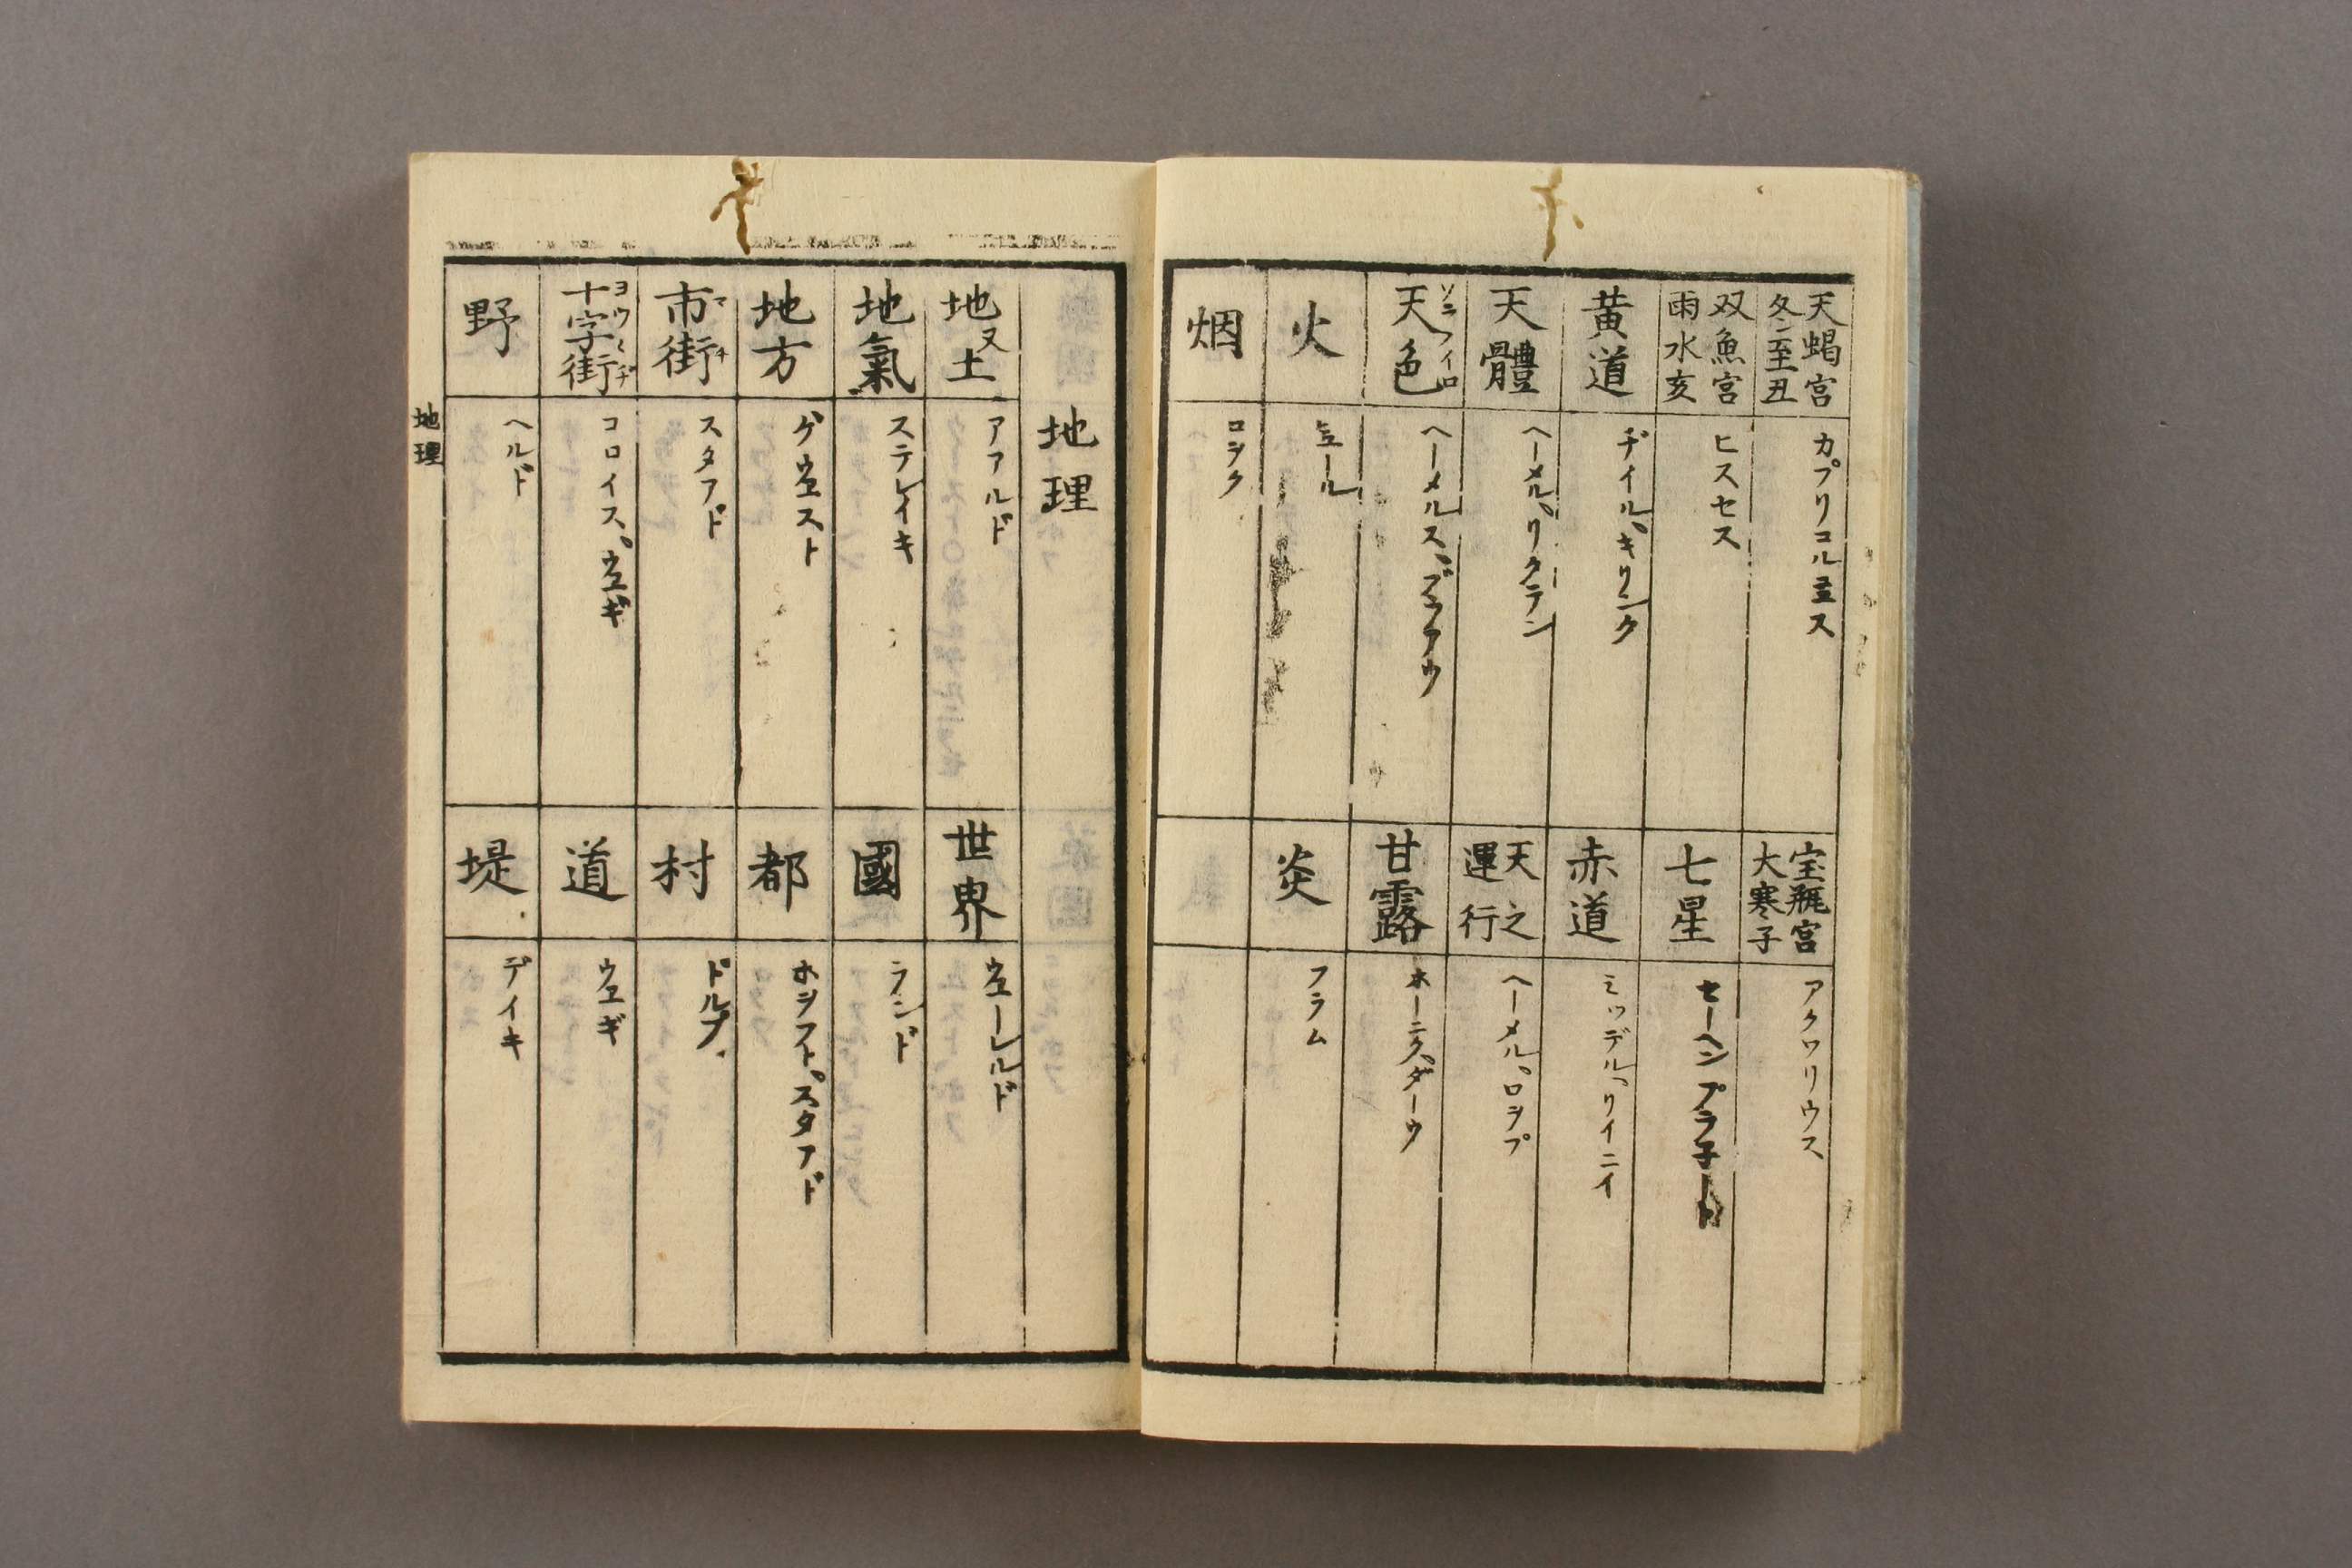 天蝎宮
冬至丑
カプリコルニュス
宝瓶宮
大寒子
アクワリウス
双魚宮
雨水亥
ヒスセス
七星
セーヘンプラ子ート
黄道
ヂイル、キリンク
赤道
ミッデル、リイニイ
天體
ヘーメル、リクテン
天之
運行
ヘーメル、ロヲプ
天色
ソラノイロ
ヘーメルス、ブラアウ
甘露
ホーニク、ダーウ
火
ヒュール
炎
フラム
烟
ロヲク
地理
地又土
アアルド
世界
ウエーレルド
地氣
ステレイキ
國
ランド
地方
ゲウエスト
都
ホヲフト、スタアド
市街
マチ
スタアド
村
ドルプ
十字街
ヨツツヂ
コロイス、ウエギ
道
ウエギ
野
ヘルド
堤
デイキ
地理